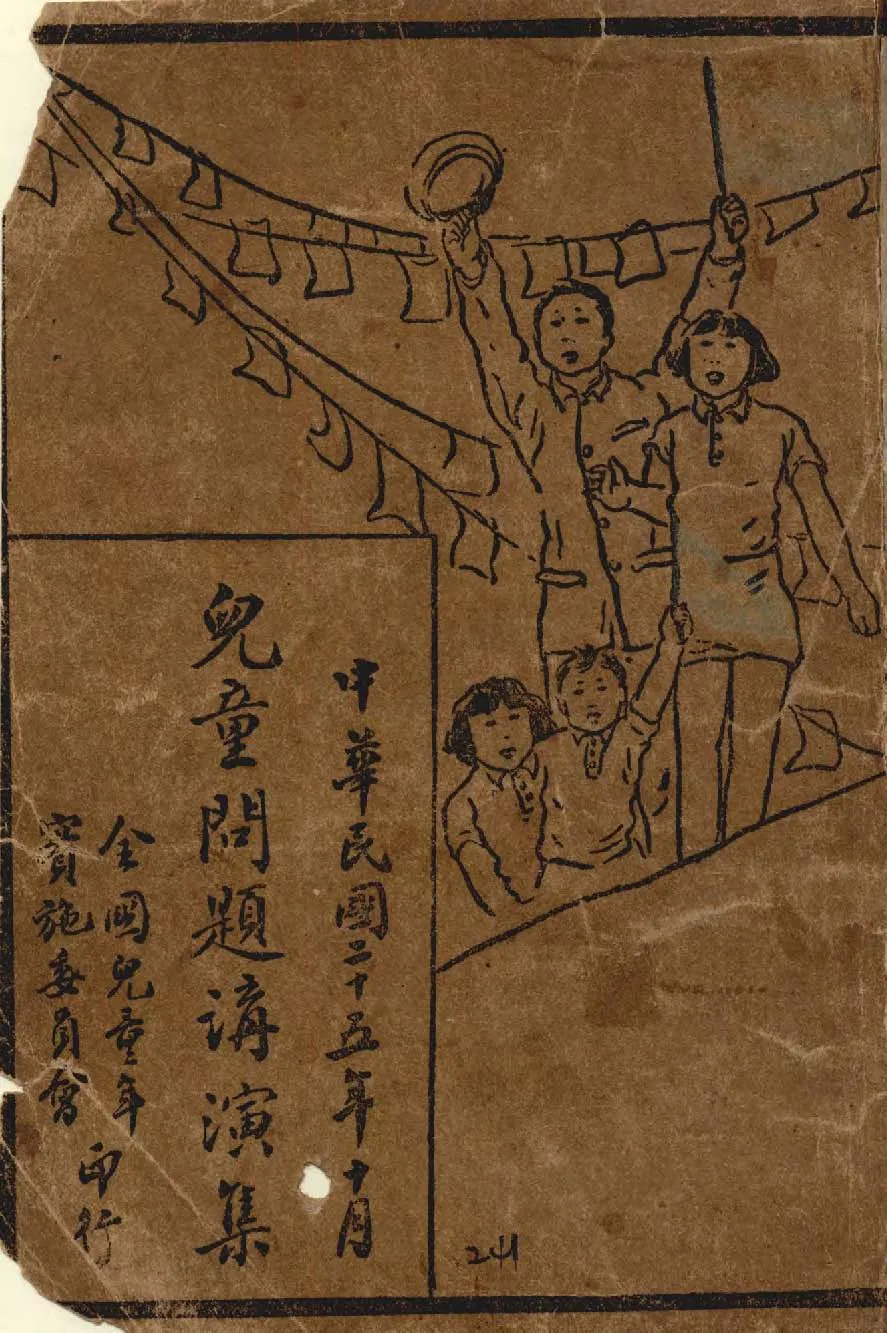 中華民國二十五年十月
兒童問題講演集
全國兒童年
實施委員會
印行
241